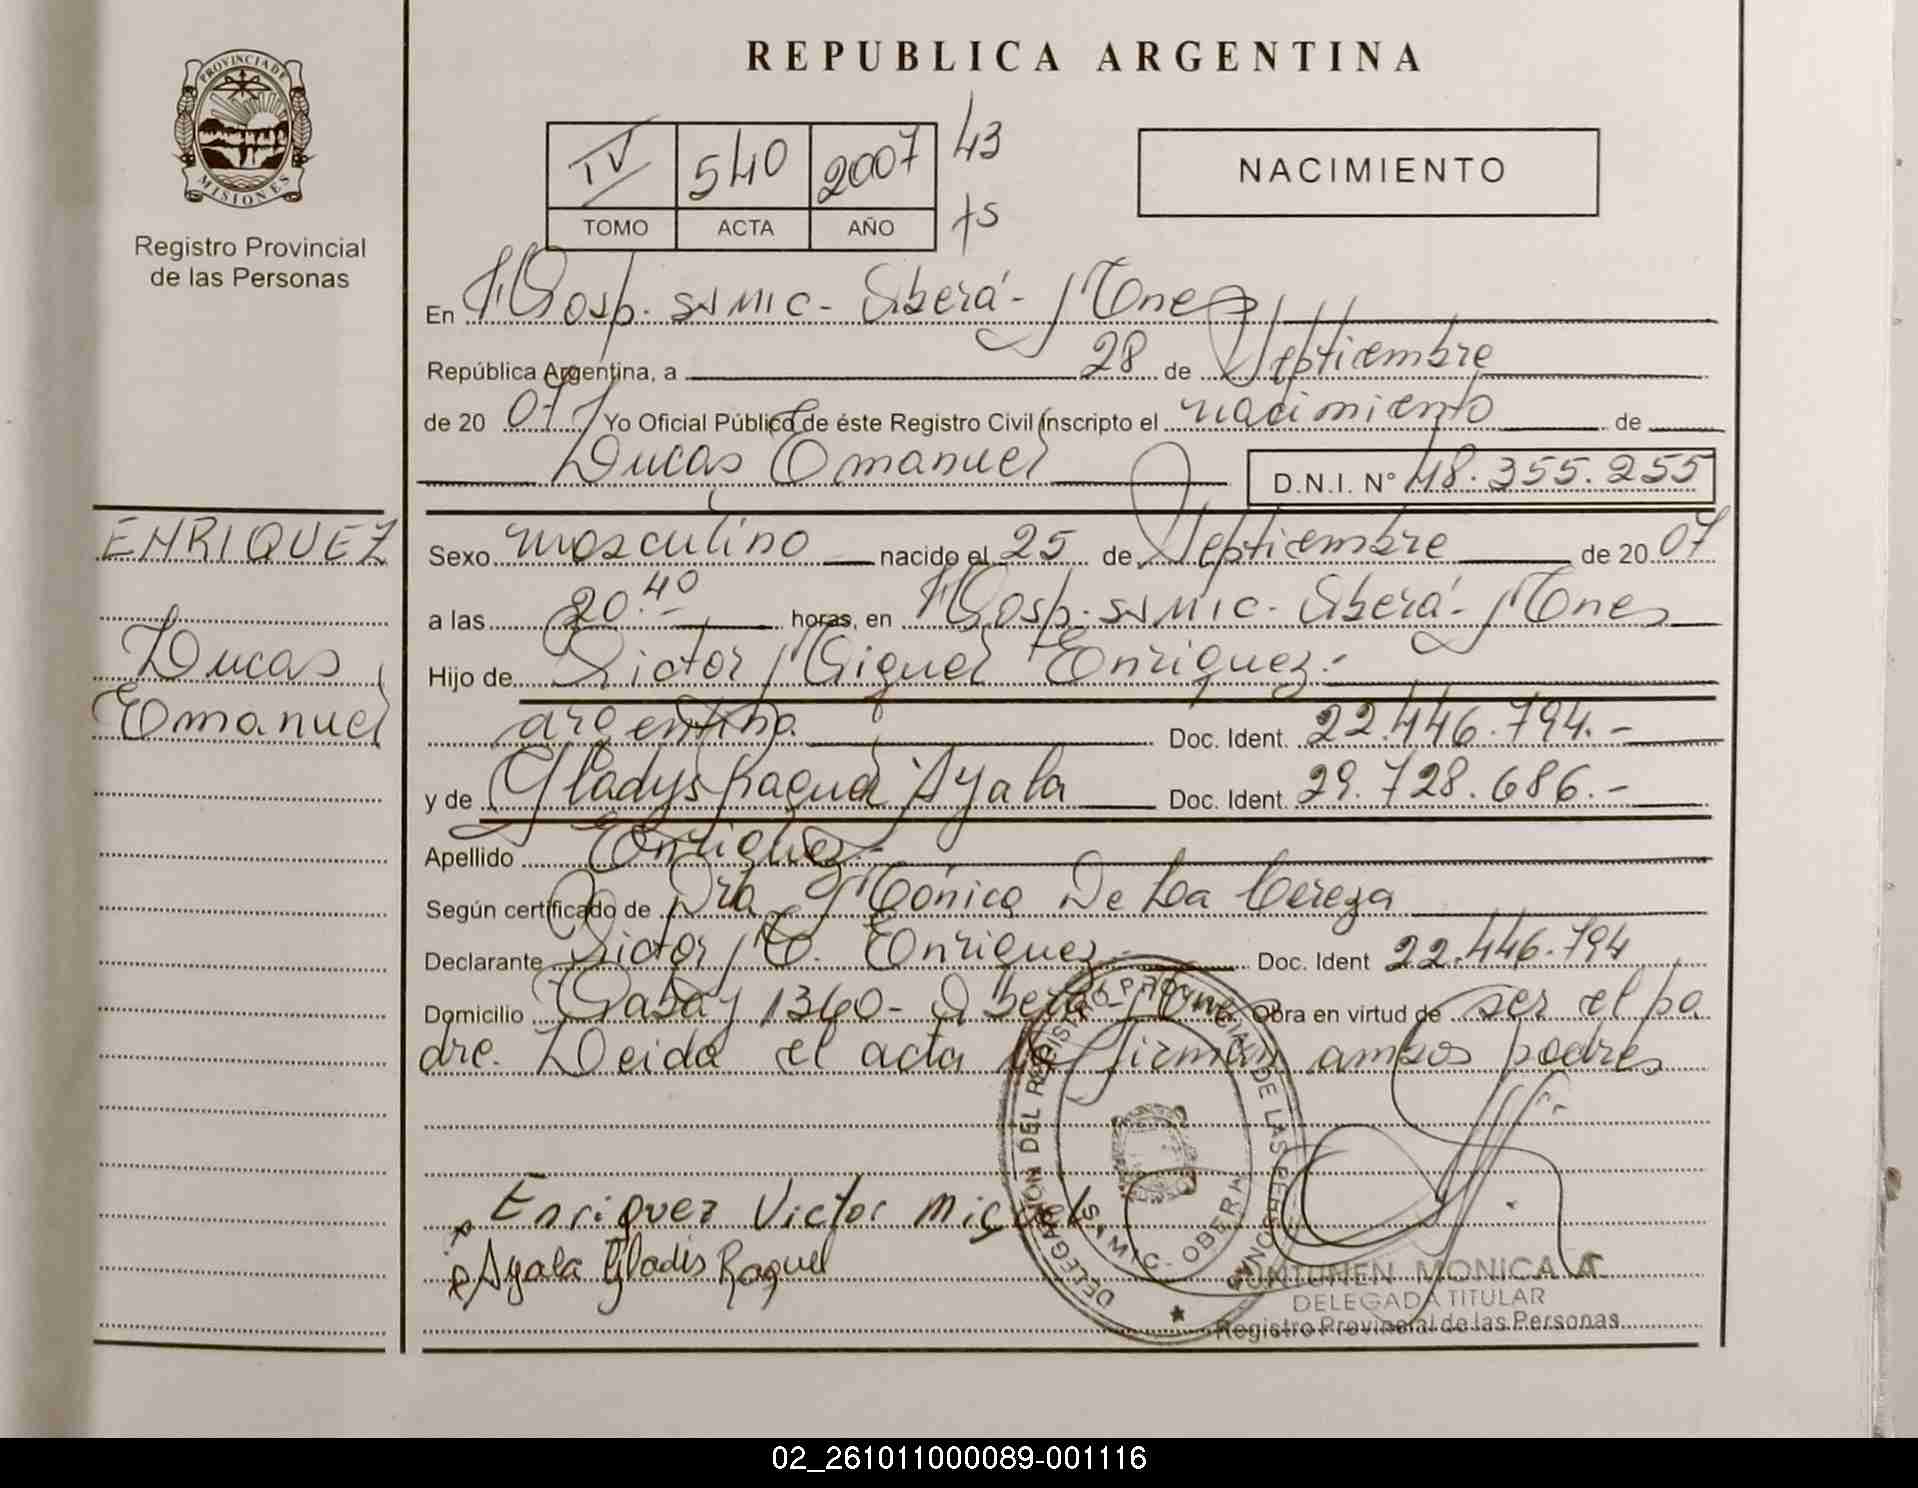 REPUBLICA ARGENTINA
PROVINCIA DE
MISIONES
Registro Provincial
de las Personas
IV 540 2007 43
TOMO ACTA AÑO 75
NACIMIENTO
En Hosp. SAMIC - Oberá - Mnes
República Argentina, a 28 de Septiembre
de 2007 Yo Oficial Público de éste Registro Civil inscripto el nacimiento de
Lucas Emanuel D.N.I. N° 48.355.255
ENRIQUEZ
Lucas
Emanuel
Sexo masculino nacido el 25 de Septiembre de 2007
a las 20.40 horas, en Hosp. SAMIC - Oberá - Mnes
Hijo de Victor Miguel Enriquez.-
argentina Doc. Ident. 22.446.794.-
y de Gladys Raquel Ayala Doc. Ident. 29.728.686.-
Apellido Enriquez.-
Según certificado de Dra Mónica De La Cereza
Declarante Victor M. Enriquez.- Doc. Ident 22.446.794
Domicilio 1360 - Oberá - Mnes Obra en virtud de ser el pa
dre. Leida el acta la firman ambos padres
Enriquez Victor Miguel
Ayala Gladis Raquel
DELEGACIÓN DEL REGISTRO PROVINCIAL DE LAS PERSONAS
SAMIC - OBERA
MONICA A.
DELEGADA TITULAR
Registro Provincial de las Personas
02_261011000089-001116